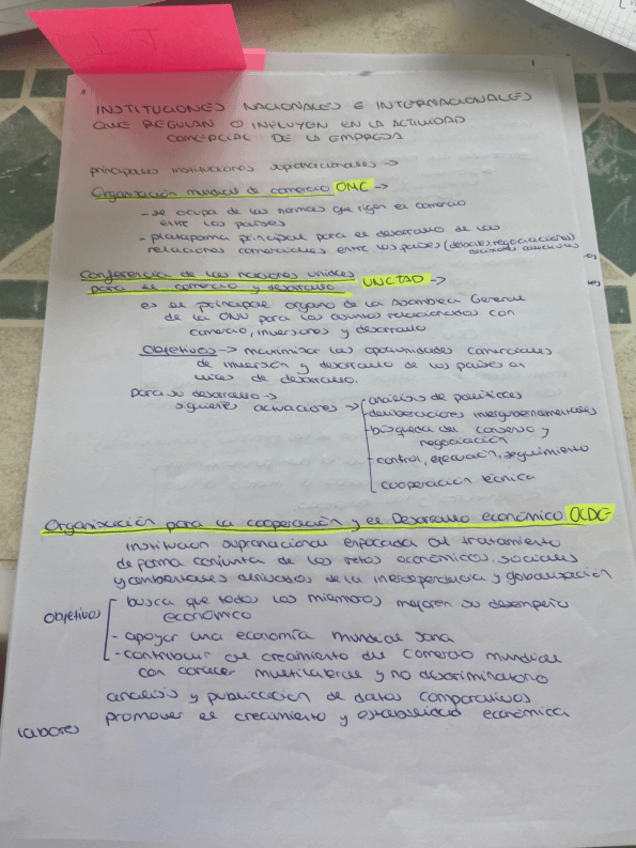 I J
INSTITUCIONES NACIONALES E INTERNACIONALES
QUE REGULAN O INFLUYEN EN LA ACTIVIDAD
COMERCIAL DE LA EMPRESA
principales instituciones supranacionales →
Organización mundial de comercio OMC →
- se ocupa de las normas que rigen el comercio
entre los países
- plataforma principal para el desarrollo de las
relaciones comerciales entre los países (debates, negociaciones
Conferencia de las naciones unidas
para el comercio y desarrollo UNCTAD →
es el principal órgano de la Asamblea General
de la ONU para los asuntos relacionados con
comercio, inversiones y desarrollo
Objetivos → maximizar las oportunidades comerciales
de inversión y desarrollo de los países en
vías de desarrollo.
para su desarrollo →
siguientes actuaciones →
- análisis de políticas
- deliberaciones intergubernamentales
- búsqueda del consenso y
negociación
- control, ejecución, seguimiento
cooperación técnica
Organización para la cooperación y el Desarrollo económico OCDE
institución supranacional enfocada al tratamiento
de forma conjunta de los retos económicos, sociales
y ambientales derivados de la interdependencia y globalización
objetivos
busca que todos los miembros mejoren su desempeño
económico
- apoyar una economía mundial sana
- contribuir al crecimiento del comercio mundial
con carácter multilateral y no discriminatorio
análisis y publicación de datos comparativos
labores promover el crecimiento y estabilidad económica